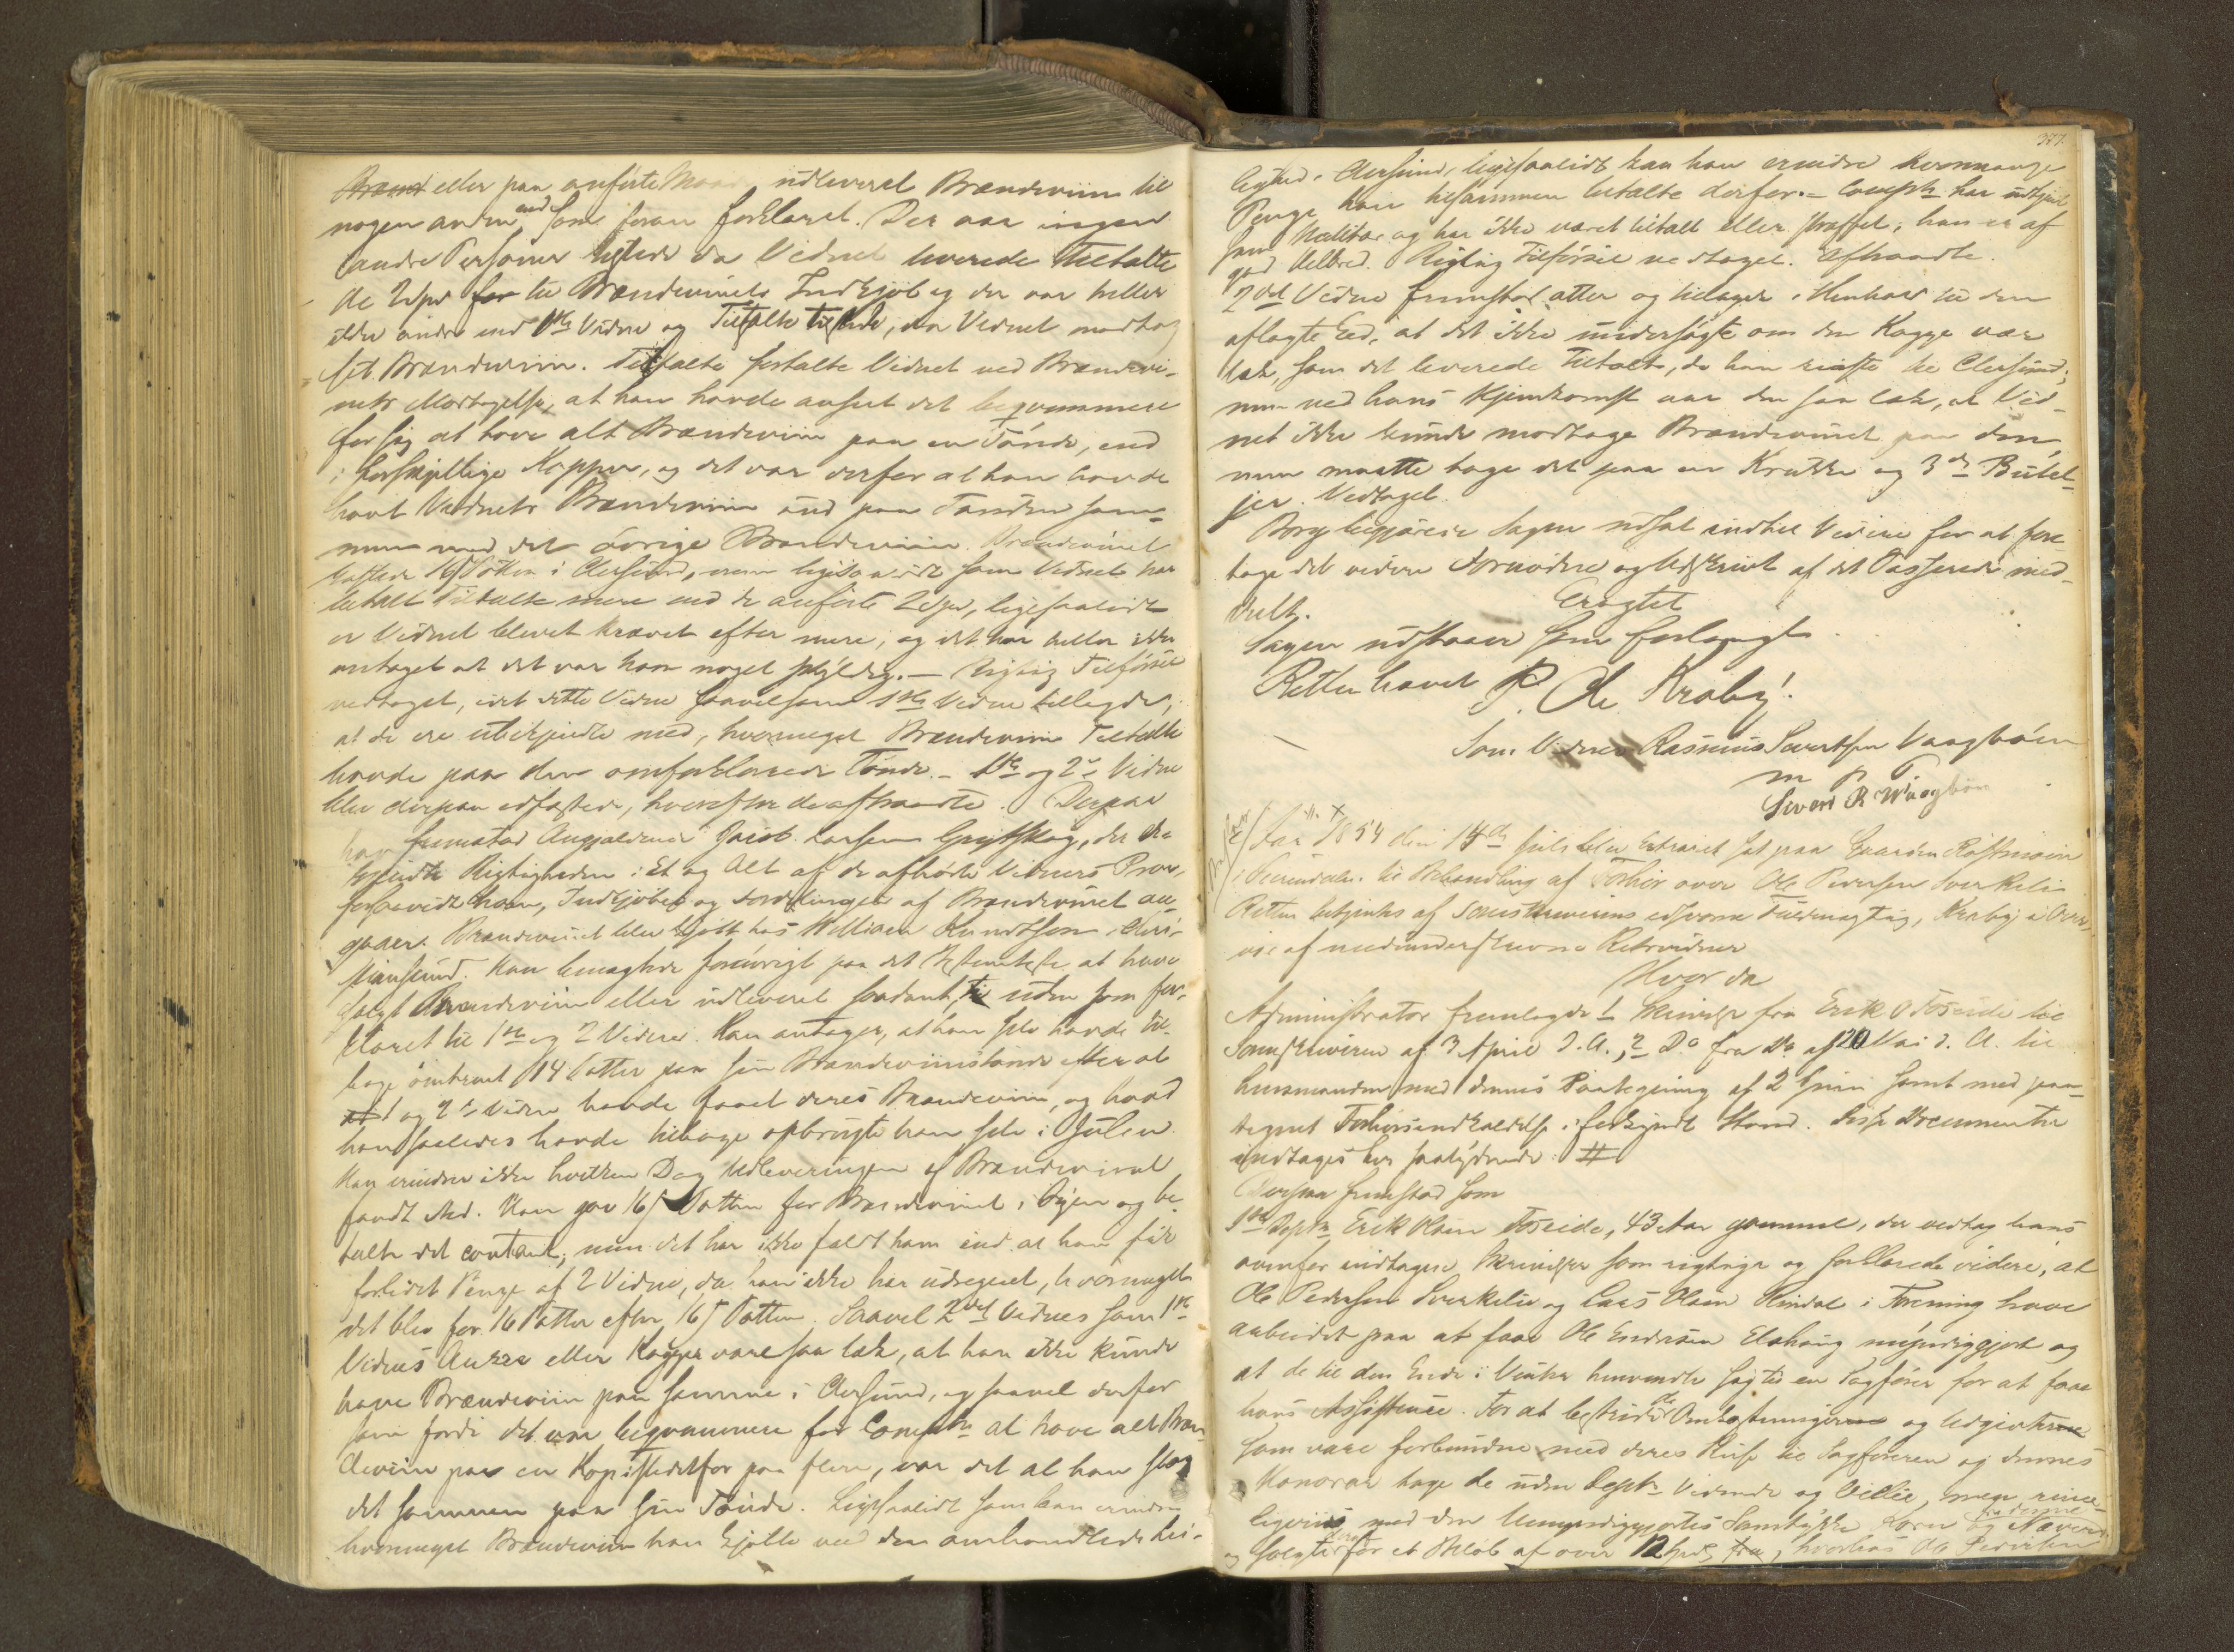 eller paa anførte Maade udleveret Brændeviin til
nogen anden end som foran forklaret. Der var ingen
andre Personer tilstede da Vidnet leverede Tiltalte
de 2 Spd for til Brændevinets Indkjøb og der var heller
ikke andre end 1ste Vidne og Tiltalte tilstede, da Vidnet modtog
sit Brændeviin. Tiltalte fortalte Vidnet ved Brændevi-
nets Modtagelse, at han havde anseet det beqvemmere
for sig at have alt Brændeviin paa en Tønde, end
i forskjellige Kopper, og det var derfor at han havde
havt Vidnets Brændeviin ind paa Tønden sam-
men med det øvrige Brændeviin. Brændevinet
kostede 16 Potten i Chrsund, men ligesaalidt som Vidnet har
betalt Tiltalte mere end de anførte 2 Spd, ligesaalidt
er Vidnet blevet krævet efter mere, og det har heller ikke
antaget at det var ham noget skyldig. — Rigtig Tilførsel
vedtaget, idet dette Vidne saavelsom 1ste Vidne tillagde,
at de ere ubekjendte med, hvormeget Brændeviin Tiltalte
havde paa den omforklarede Tønde. — 1ste og 2det Vidne
blev derpaa edfæstede, hvorefter de afstraadte. Derpaa
fremstod Angjældende Jacob Larsen, der
Rigtigheden i Et og Alt af de afhørte Vidners Prov,
forsaavidt ham, Indkjøbet og Fordelingen af Brændevinet an-
gaaer. Brændevinet blev kjøbt hos William Knudtzon i Chri-
stiansund. Han benægtede forøvrigt paa det Bestemteste at have
solgt Brændeviin eller udleveret saadant, uden som for-
klaret til 1ste og 2 Vidne. Han antager, at han selv havde til-
bage omtrent 14 Potter paa sin Brændeviinstønde efter at
1 og 2det Vidne havde faaet deres Brændeviin, og hvad
han saaledes havde tilbage opbrugte han selv i Julen.
Han erindrer ikke hvilken Dag Udleveringen af Brændevinet
fandt Sted. Han gav 16 Potten for Brændevinet i Byen og be-
talte det contant; men det har ikke faldt ham ind at han fik
forlidet Penge af 2 Vidne, da han ikke har udregnet, hvormeget
det blev for 16 Potter efter 16 Potten. Saavel 2det Vidnes som 1ste
Vidnes Anker eller Kagge vare saa læk, at han ikke kunde
have Brændeviin paa samme i Chrsund, og saavel derfor
som fordi det var beqvemmere for Compten at have alt Bræn-
deviin paa en Kop istedetfor paa flere, var det at han slog
det sammen paa sin Tønde. Ligesaalidt som han erindrer
hvormeget Brændeviin han kjøbte ved den omhandlede Lei-
377.
lighed i Chrsund, ligesaalidt kan han erindre hvormange
Penge han tilsammen betalte derfor. — Compten har udtjent
som Militær og har ikke været tiltalt eller straffet; han er af
god Helbred. Rigtig Tilførsel vedtaget. Afstraadte.
2det Vidne fremstod atter og tillagde i Henhold til den
aflagte Eed, at det ikke undersøgte om den Kagge var
læk, som det leverede Tiltalte, da han reiste til Chrsund;
men ved hans Hjemkomst var den saa læk, at Vid-
net ikke kunde modtage Brændevinet paa den,
men maatte tage det paa en Krukke og 3de Butel-
jer. Vedtaget.
begjærede Sagen udsat indtil Videre for at fore-
tage det videre Fornødne og Udskrivt af det Passerede med-
delt.
Eragtet
Sagen udstaaer som forlangt.
Retten hævet P. Ole Kraby.
Som Vidner Rasmus Sivertsen Vaagbøen
m p P
Sivert R Waagbøen
Aar 1854 den 14de Juli blev Extraret sat paa Gaarden Røstmoen
i Surendalen til Behandling af Forhør over Ole Pedersen Sverkelie
Retten betjentes af Sorenskriverens edsvorne Fuldmægtig, Kraby i Over-
vær af medunderskrevne Retsvidner
Hvor da
Administrator fremlagde 1. Skrivelse fra Erik O Foseide til
Sorenskriveren af 3 April d. A., 2 Do fra Do af 20 Mai d. A. til
Lensmanden med dennes Paategning af 2 Juni samt med paa-
tegnet Forhørsindkaldelse i forkyndt Stand. Disse Documenter
indtages her saalydende. #
Derpaa fremstod som
1ste Depte Erik Olsen Foseide, 43 Aar gammel, der vedtog hans
ovenfor indtagne Skrivelser som rigtige og forklarede videre, at
Ole Pedersen Sverkelie og Lars Olsen Kindal i Forening have
arbeidet paa at faae Ole Endresen umyndiggjort og
at de til den Ende i Vinter henvendte sig til en Sagfører for at faae
hans Assistence. For at bestride de Omkostninger og Udgivter
som vare forbundne med deres Reise til Sagføreren og dennes
Honorar toge de uden Deptns Vidende og Villie, men rime-
ligviis med den Umyndiggjortes Samtykke Korn og Næver fra denne
og solgte for et Beløb af over 12 Spd, hvorhos Ole Pedersen